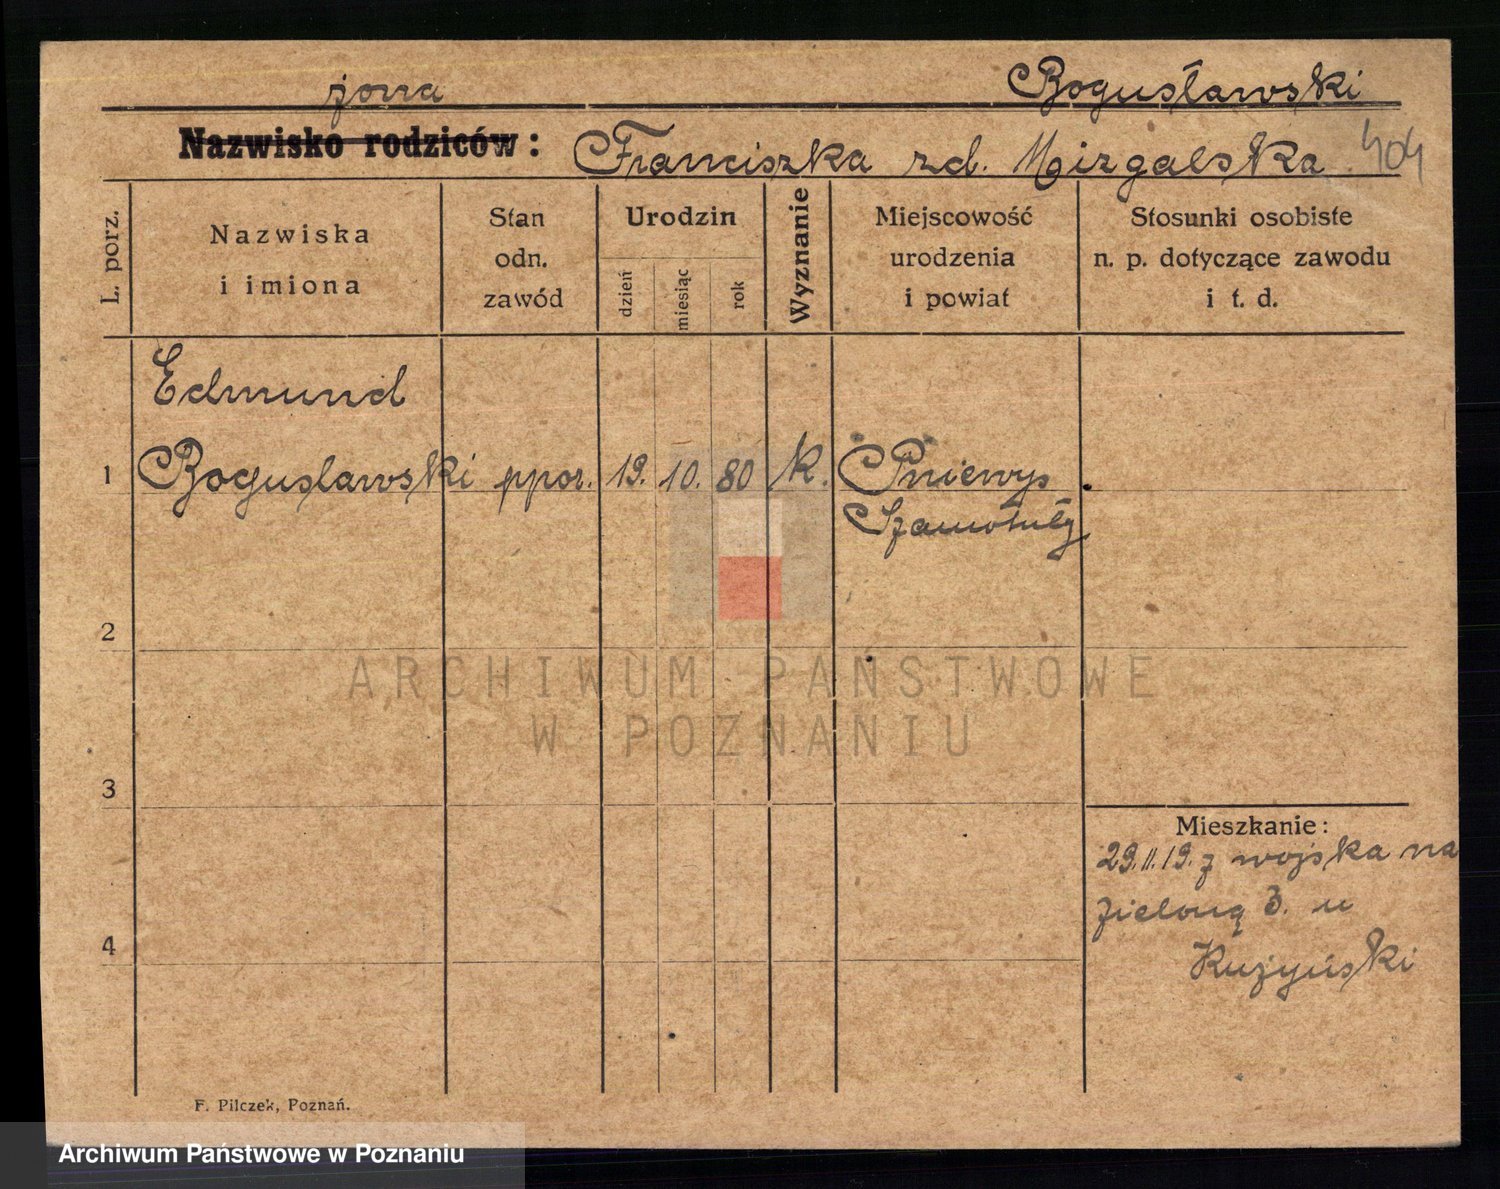 żona Bogusławski
Nazwisko rodziców: Franciszka zd. Mizgalska 404
L. porz.
Nazwiska
i imiona
Stan
odn.
zawód
Urodzin
dzień
miesiąc
rok
Wyznanie
Miejscowość
urodzenia
i powiat
Stosunki osobiste
n. p. dotyczące zawodu
i t. d.
Edmund
1 Bogusławski ppor. 19. 10. 80 k. Pniewy
Szamotuły
2
ARCHIWUM PAŃSTWOWE
W POZNANIU
3
Mieszkanie:
29.11.19. z wojska na
Zieloną 3. u
4
F. Pilczek, Poznań.
Archiwum Państwowe w Poznaniu